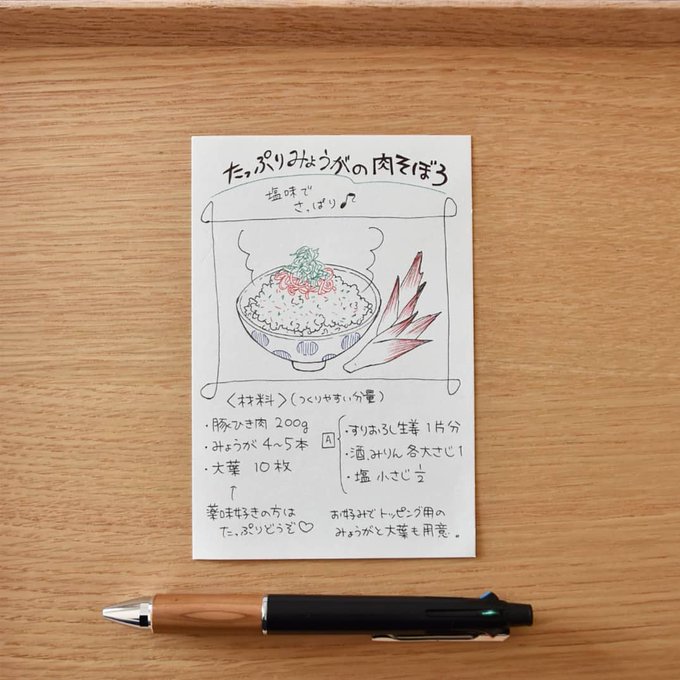 たっぷりみょうがの肉そぼろ
塩味で
さっぱり♪
〈材料〉(つくりやすい分量)
・豚ひき肉 200g
・みょうが 4〜5本
・大葉 10枚
↑
薬味好きの方は
たっぷりどうぞ♡
A
・すりおろし生姜 1片分
・酒、みりん 各大さじ1
・塩 小さじ1/2
お好みでトッピング用の
みょうがと大葉も用意。